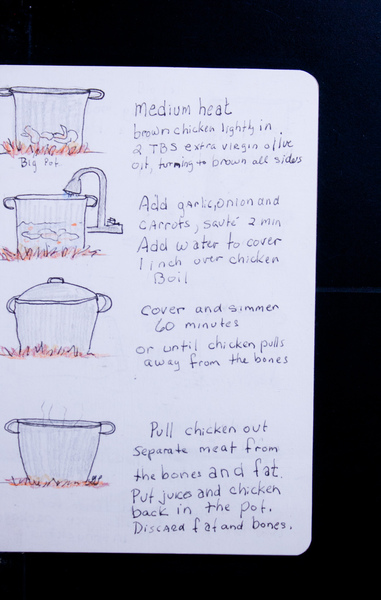 medium heat
brown chicken lightly in
2 TBS extra virgin olive
oil, turning to brown all sides
Big Pot
Add garlic, onion and
carrots, sauté 2 min
Add water to cover
1 inch over chicken
Boil
Cover and simmer
60 minutes
or until chicken pulls
away from the bones
Pull chicken out
separate meat from
the bones and fat.
Put juices and chicken
back in the pot.
Discard fat and bones.